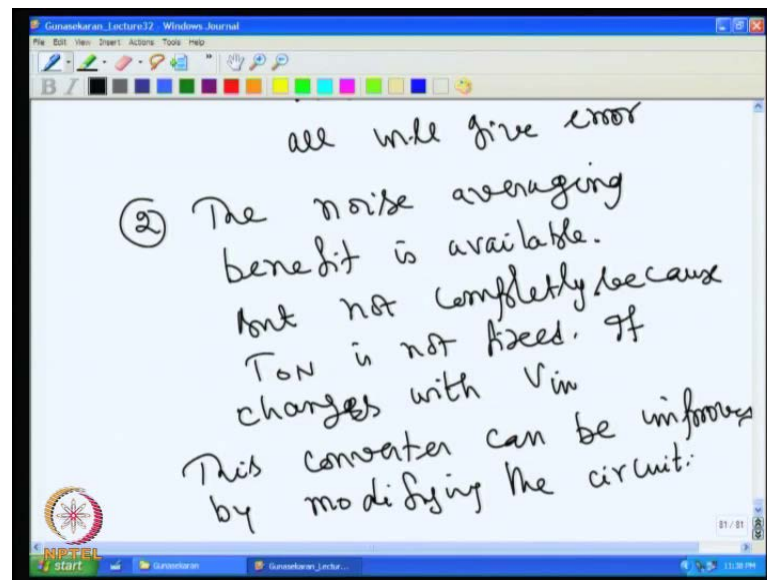 Gunasekaran_Lecture32 - Windows Journal
File Edit View Insert Actions Tools Help
B I
all will give error
② The noise averaging
benefit is available.
But not completly because
TON is not fixed. It
changes with Vin
This converter can be improves
by modifying the circuit.
81 / 81
NPTEL
start Gunasekaran Gunasekaran_Lectur... 11:38 PM